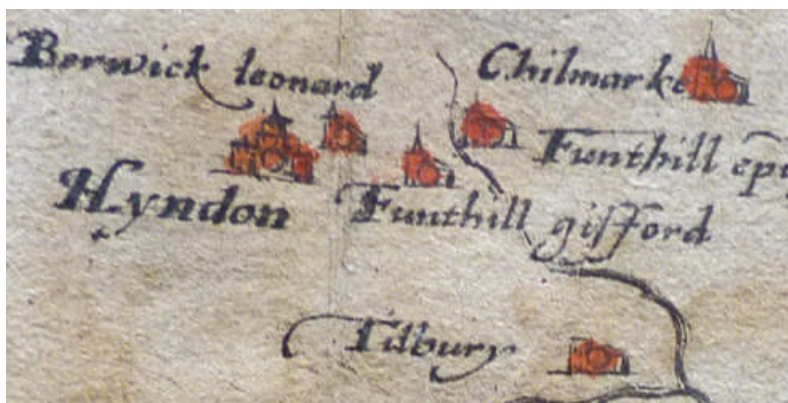 Berwick leonard
Chilmarke
Funthill epi
Hyndon
Funthill gifford
Tilbury